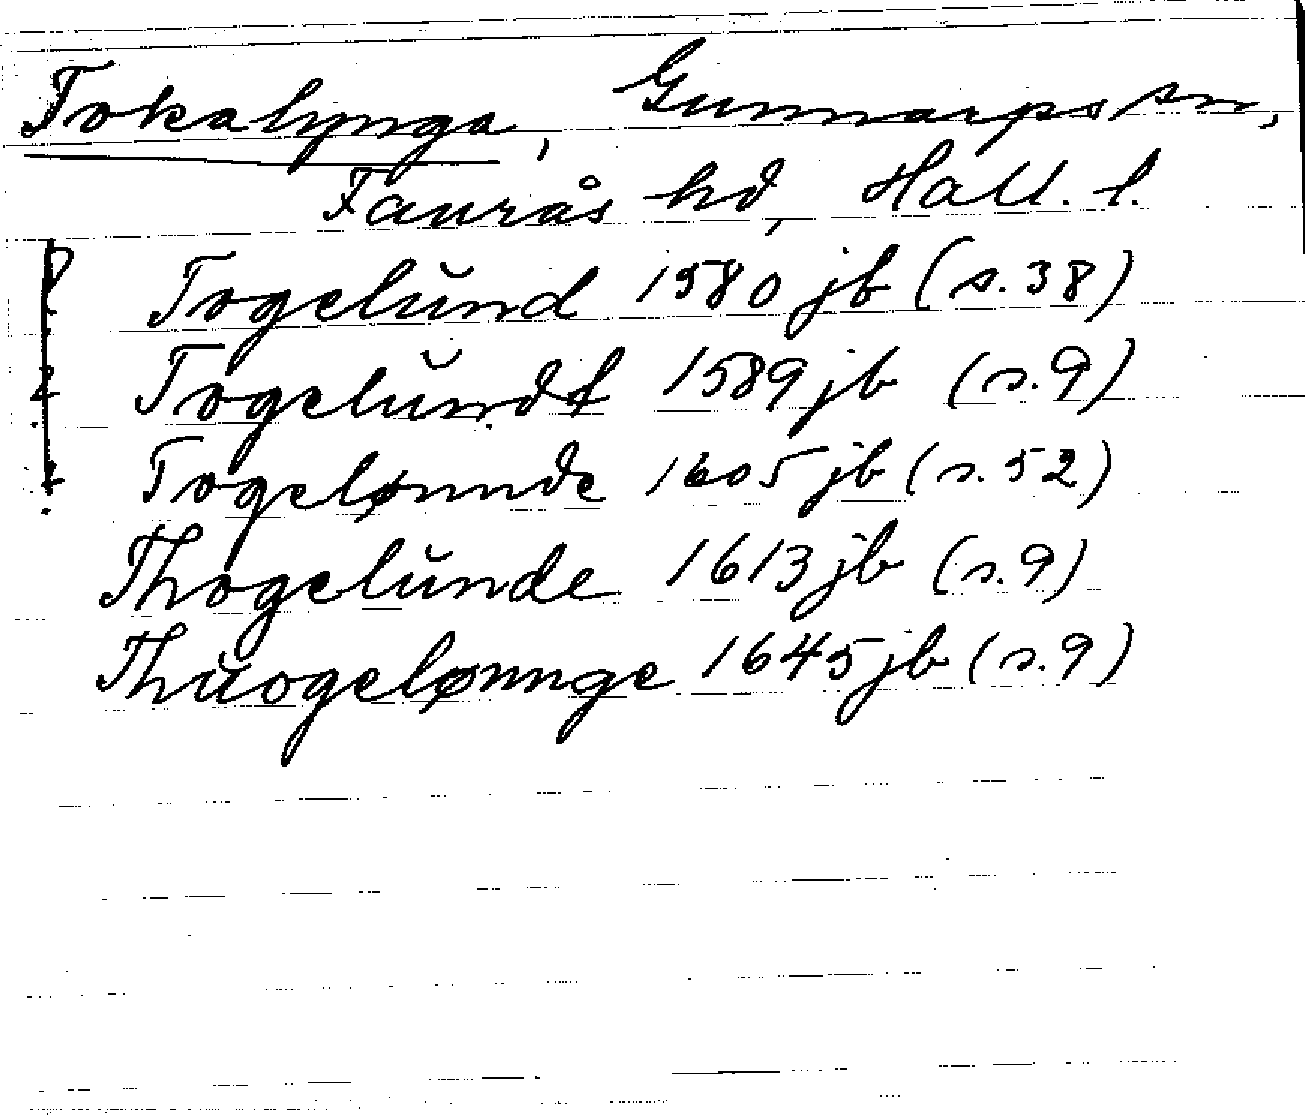 Tokalynga, Gunnarps sn,
Faurås hd, Hall. l.
Togelŭnd 1580 jb (s. 38)
Togelŭndt 1589 jb (s. 9)
Togelønnde 1605 jb (s. 52)
Thogelŭnde 1613 jb (s. 9)
Thŭogelønnge 1645 jb (s. 9)